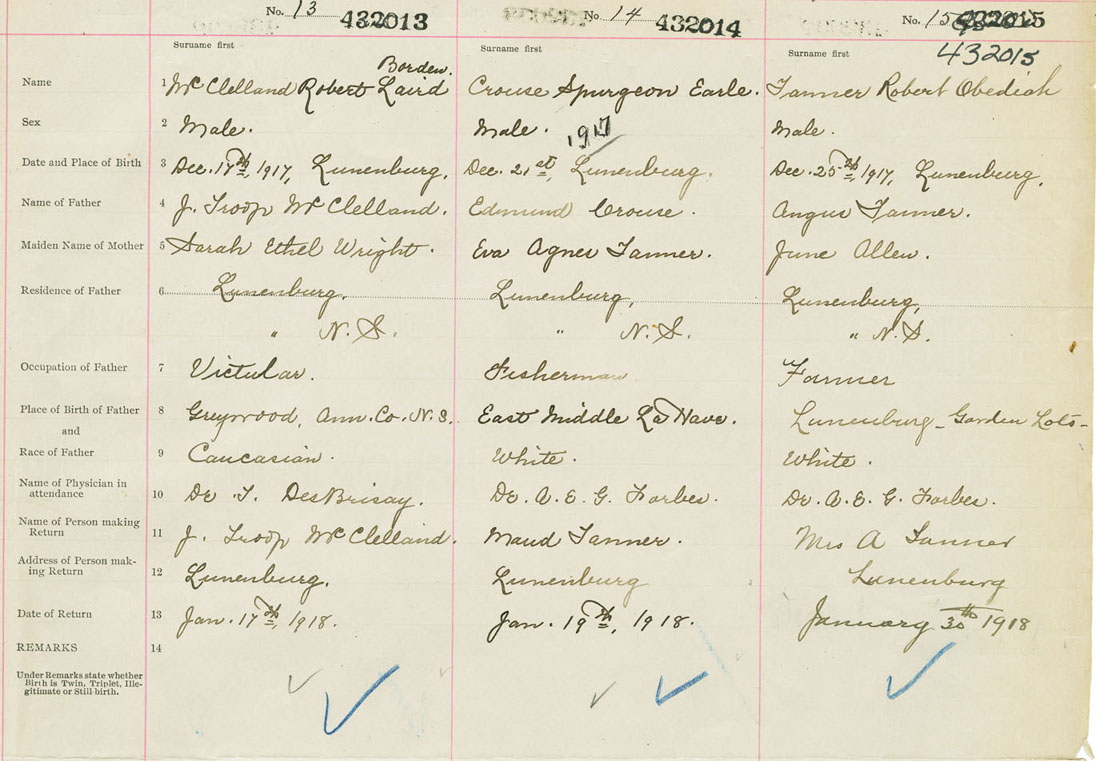 No. 13 432013 No. 14 432014 No. 15 432015
432015
Surname first Surname first Surname first
Borden.
Name 1 McClelland Robert Laird Crouse Spurgeon Earle. Tanner Robert Obediah
Sex 2 Male. Male. Male.
1917
Date and Place of Birth 3 Dec. 17th, 1917, Lunenburg. Dec. 21st, Lunenburg. Dec. 25th, 1917, Lunenburg.
Name of Father 4 J. Troop McClelland. Edmund Crouse. Angus Tanner.
Maiden Name of Mother 5 Sarah Ethel Wright. Eva Agnes Tanner. June Allen.
Residence of Father 6 Lunenburg, Lunenburg, Lunenburg,
" N.S. " N.S. " N.S.
Occupation of Father 7 Victular. Fisherman Farmer
Place of Birth of Father 8 Greywood, Ann. Co. N.S. East Middle La Have. Lunenburg - Garden Lots -
and
Race of Father 9 Caucasian. White. White.
Name of Physician in
attendance 10 Dr DesBrisay. Dr. A. E. G. Forbes. Dr. A. E. G. Forbes.
Name of Person making
Return 11 J. Troop McClelland. Maud Tanner. Mrs A Tanner
Address of Person mak-
ing Return 12 Lunenburg. Lunenburg Lunenburg
Date of Return 13 Jan. 17th, 1918. Jan. 19th, 1918. January 30th 1918
REMARKS 14
Under Remarks state whether
Birth is Twin, Triplet, Ille-
gitimate or Still-birth.